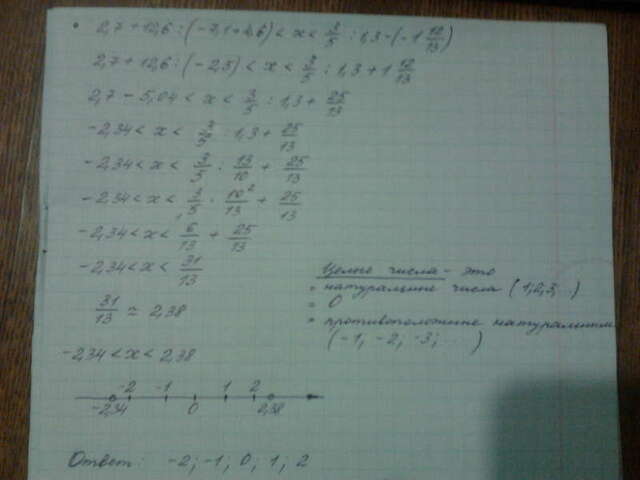 2,7 + 12,6 : (-7,1+4,6) < x < 3/5 : 1,3 - (-1 12/13)
2,7 + 12,6 : (-2,5) < x < 3/5 : 1,3 + 1 12/13
2,7 - 5,04 < x < 3/5 : 1,3 + 25/13
-2,34 < x < 3/5 : 1,3 + 25/13
-2,34 < x < 3/5 : 13/10 + 25/13
-2,34 < x < 3/5 · 10²/13 + 25/13
-2,34 < x < 6/13 + 25/13
-2,34 < x < 31/13
31/13 ≈ 2,38
-2,34 < x < 2,38
Целые числа - это
• натуральные числа (1,2,3,...)
• 0
• противоположные натуральным
(-1; -2; -3; ...)
-2 -1 1 2
-2,34 0 2,38
Ответ: -2; -1; 0; 1; 2